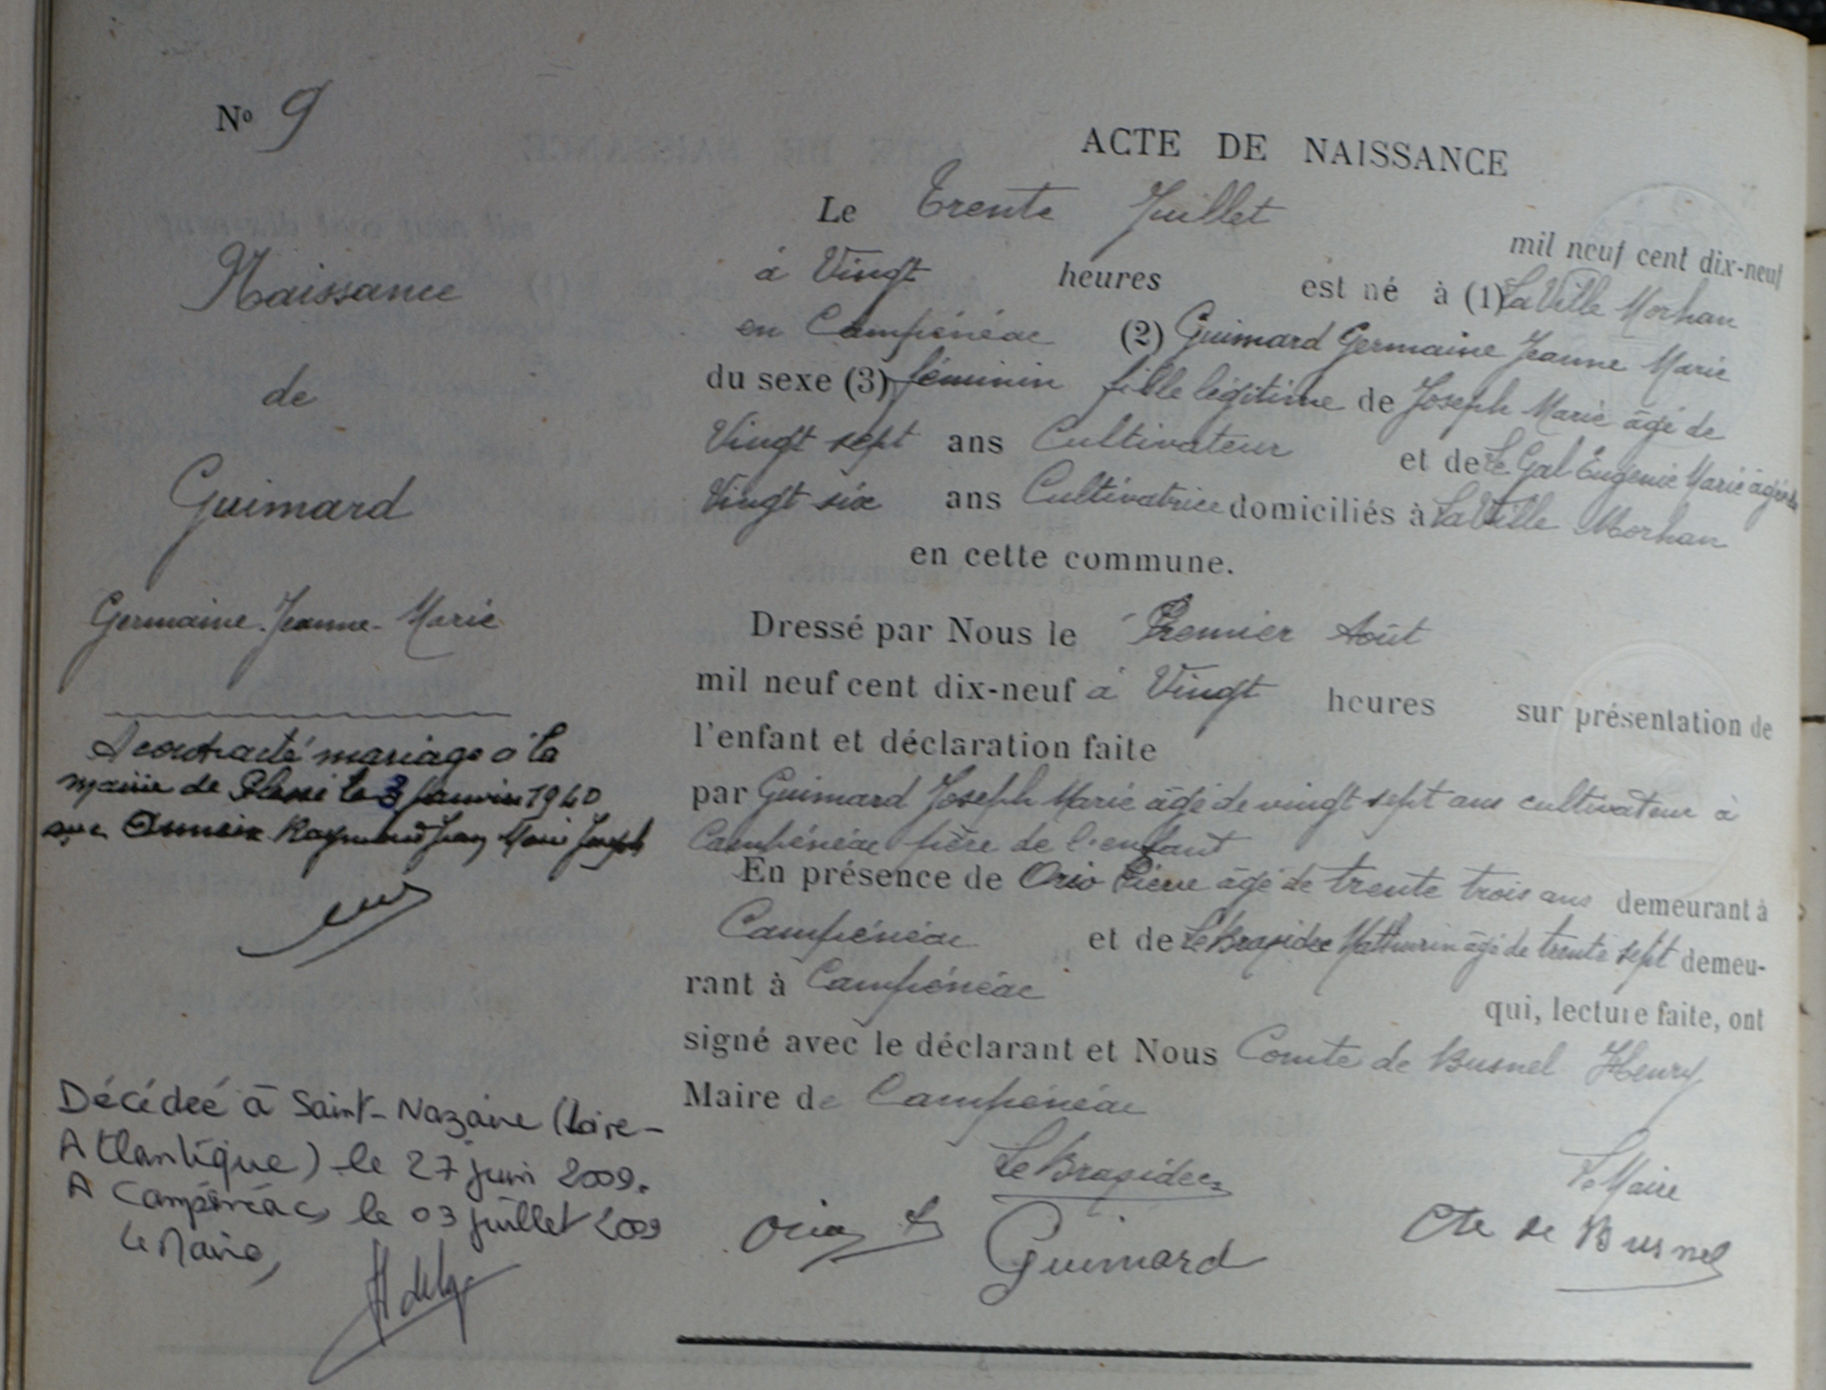 N° 9
Naissance
de
Guimard
Germaine. Jeanne-Marie
A contracté mariage à la
mairie de le 3 Janvier 1940
avec Raymond Jean Marie Joseph
Décédée à Saint-Nazaire (Loire-
Atlantique) le 27 juin 2009.
A Campénéac, le 03 juillet 2009
Le Maire,
ACTE DE NAISSANCE
Le Trente Juillet mil neuf cent dix-neuf
à Vingt heures est né à (1) La Ville Morhan
en Campénéac (2) Guimard Germaine Jeanne Marie
du sexe (3) féminin fille légitime de Joseph Marie âgé de
Vingt sept ans Cultivateur et de Le Gal Eugenie Marie âgée de
Vingt six ans Cultivatrice domiciliés à La Ville Morhan
en cette commune.
Dressé par Nous le Premier Août
mil neuf cent dix-neuf à Vingt heures sur présentation de
l'enfant et déclaration faite
par Guimard Joseph Marie âgé de vingt sept ans cultivateur à
Campénéac père de l'enfant
En présence de Orio Pierre âgé de trente trois ans demeurant à
Campénéac et de Le Brazidec Mathurin âgé de trente sept demeu-
rant à Campénéac qui, lecture faite, ont
signé avec le déclarant et Nous Comte de Busnel Henry
Maire de Campénéac
Le Brazidec Le Maire
Orio Guimard Cte de Busnel